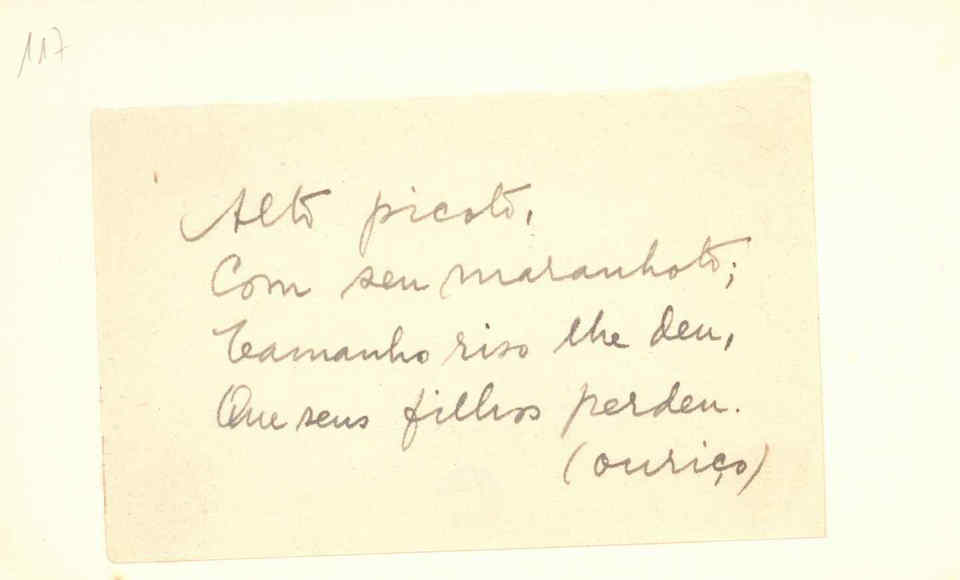 117
Alto picoto,
Com seu maranhoto;
Tamanho riso lhe deu,
Que seus filhos perdeu.
(ouriço)